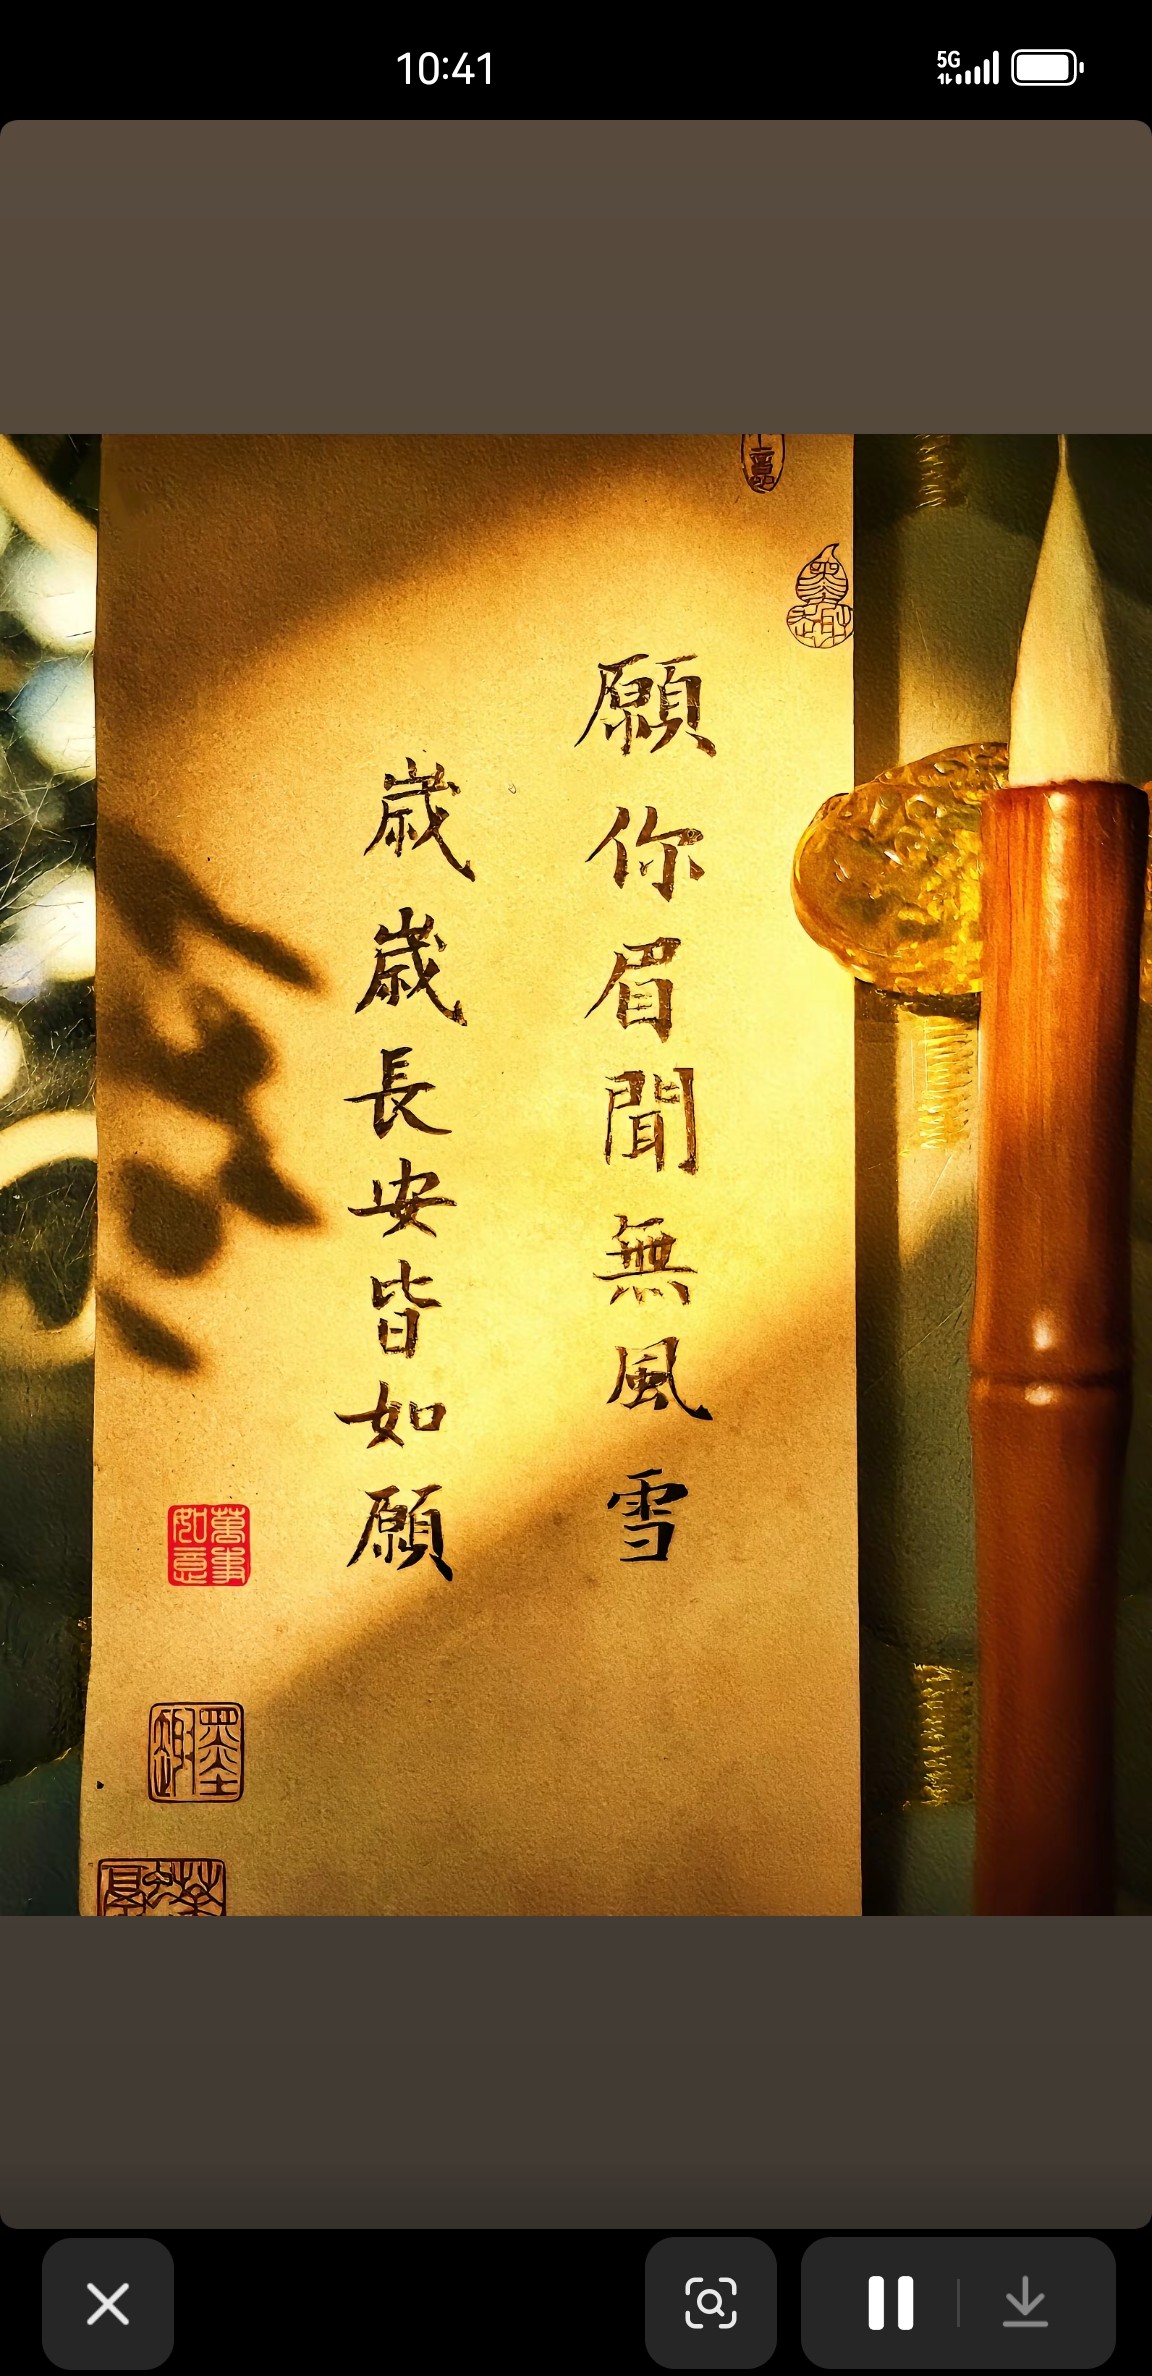 10:41
5G
願你眉聞無風雪
歲歲長安皆如願
萬事如意
墨趣